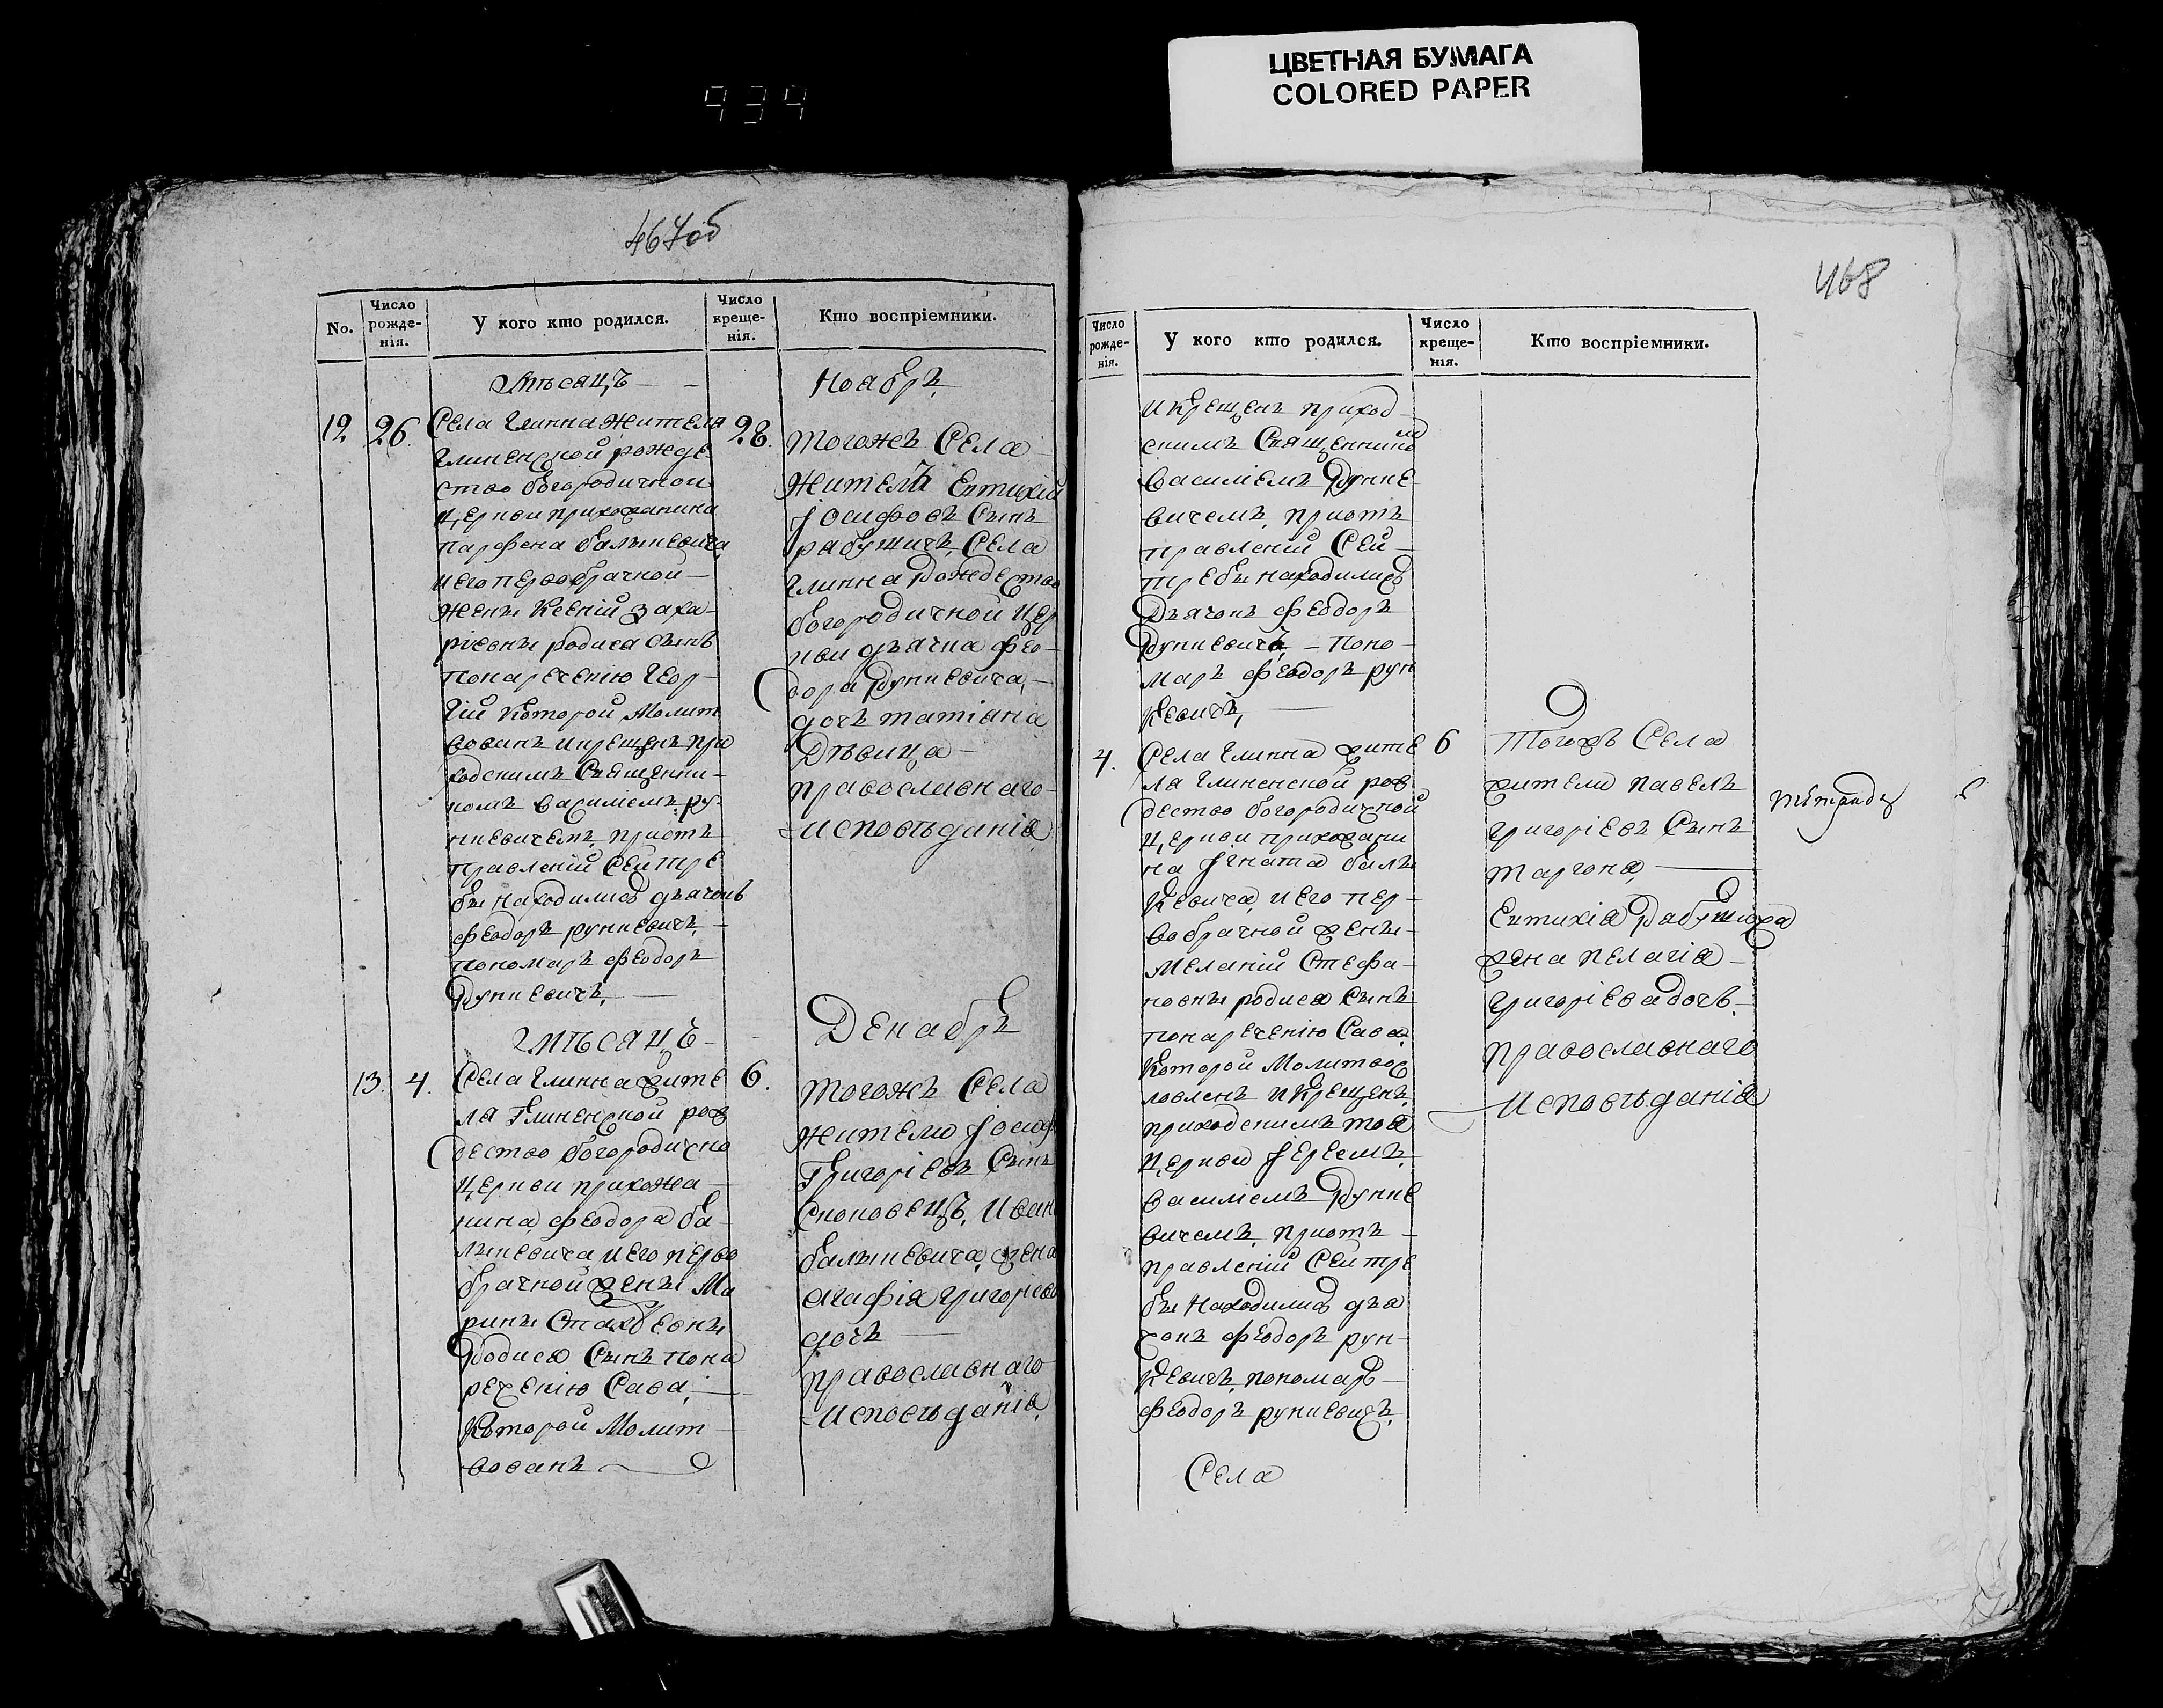 ЦВЕТНАЯ БУМАГА
COLORED PAPER
934
467об
No.
Число рожденія.
У кого кто родился.
Число крещенія.
Кто воспріемники.
Мѣсяцъ
Ноабръ
12
26.
28.
Села Глинна Жителя
Глиненской рожде
ство богородичной
Церкви прихожанина
Парфена балыкевича
и его первобрачной
жены Ксеній заха-
ріевны родися сынъ
понареченію Геор-
гій которой Молит
вованъ икрещенъ при
ходскимъ Священни-
комъ василіемъ ру-
нкевичемъ, приотъ
правленій Сей тре
бы находились дьячокъ
феодоръ рункевичъ,
пономаръ феодоръ
Рункевичъ,
Тогожъ Села
Жителъ Евтихій
Іосифовъ Сынъ
рабушичъ, Села
глинна Рождество
богородичной Цер
кви дьячка фео-
дора Рункевича,
дочъ татіана
Дѣвица
православнаго
исповѣданія
Мѣсяцъ
Декабръ
13.
4.
6.
Села Глинна жите
ля Глиненской рож
дество богородично
Церкви прихожа-
нина, феодора ба-
лыкевича, и его перво
брачной жены Ма
рины Стахѣевны
Родися Сынъ пона
реченію Сава,
Которой Молит
вованъ
Тогожъ Села
жители Іосиф
Григоріевъ Сынъ
Скоповецъ, Иван
балыкевича, жена
агафія григоріева
дочъ
православнаго
исповѣданія
468
Число рожденія.
У кого кто родился.
Число крещенія.
Кто воспріемники.
икрещенъ приход-
скимъ Священником
василіемъ Рунке
вичемъ, приотъ
правленій Сей
требы находились
Дьячокъ феодоръ
Рункевичъ, - Поно-
маръ феодоръ рун
кевичъ,
4.
6
Села Глинна жите
ля Глиненской рож
дество богородичной
Церкви прихожани
на Игната балы
кевича, и его пер-
вобрачной жены
Меланій Стефа-
новны родися Сынъ
понареченію Сава
Которой Молитвос
ловленъ икрещенъ,
приходскимъ тоя
Церкви Іереемъ,
василіемъ Рунке
вичемъ, приотъ
правленій Сей тре
бы находились дья
чокъ феодоръ рун-
кевичъ, пономаръ
феодоръ рункевичъ,
Тогожъ Села
жители Павелъ
григоріевъ Сынъ
таргоня,
Евтихія Рабушиха
жена пелагія
григоріева дочъ
православнаго
исповѣданія
Села